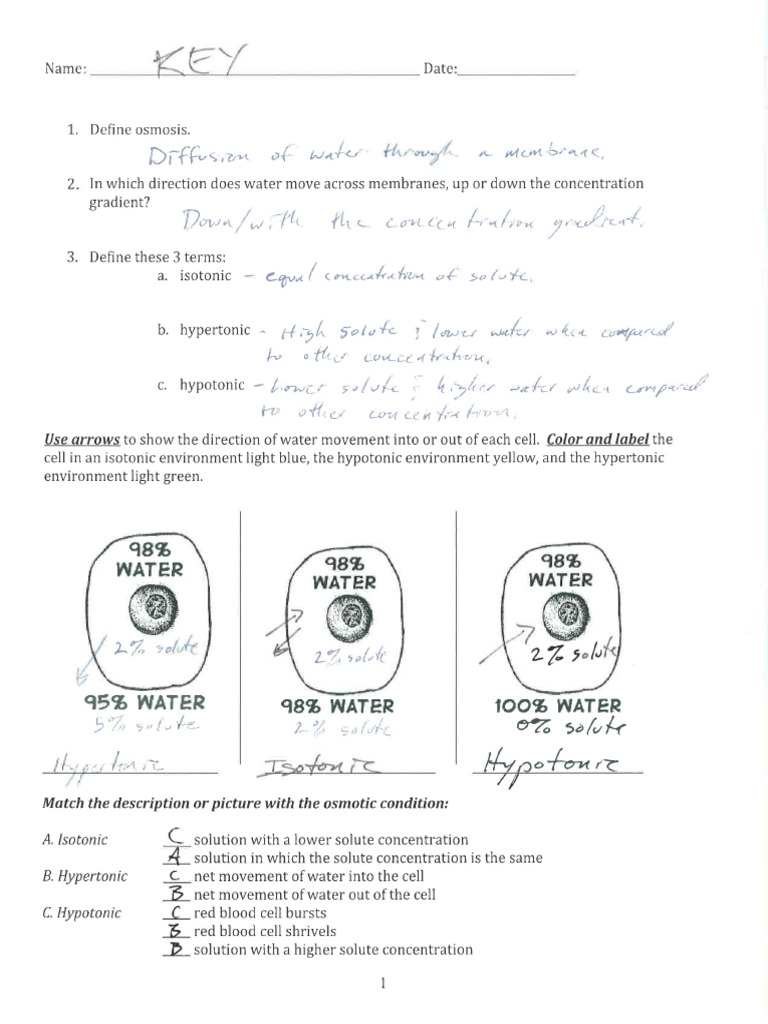 Name: KEY Date:
1. Define osmosis.
Diffusion of water through a membrane.
2. In which direction does water move across membranes, up or down the concentration
gradient?
Down/with the concentration gradient.
3. Define these 3 terms:
a. isotonic - equal concentration of solute.
b. hypertonic - High solute & lower water when compared
to other concentration.
c. hypotonic - Lower solute & higher water when compared
to other concentration.
Use arrows to show the direction of water movement into or out of each cell. Color and label the
cell in an isotonic environment light blue, the hypotonic environment yellow, and the hypertonic
environment light green.
98%
WATER
2% solute
95% WATER
5% solute
Hypertonic
98%
WATER
2% solute
98% WATER
2% solute
Isotonic
98%
WATER
2% solute
100% WATER
0% solute
Hypotonic
Match the description or picture with the osmotic condition:
A. Isotonic C solution with a lower solute concentration
A solution in which the solute concentration is the same
B. Hypertonic C net movement of water into the cell
B net movement of water out of the cell
C. Hypotonic C red blood cell bursts
B red blood cell shrivels
B solution with a higher solute concentration
1